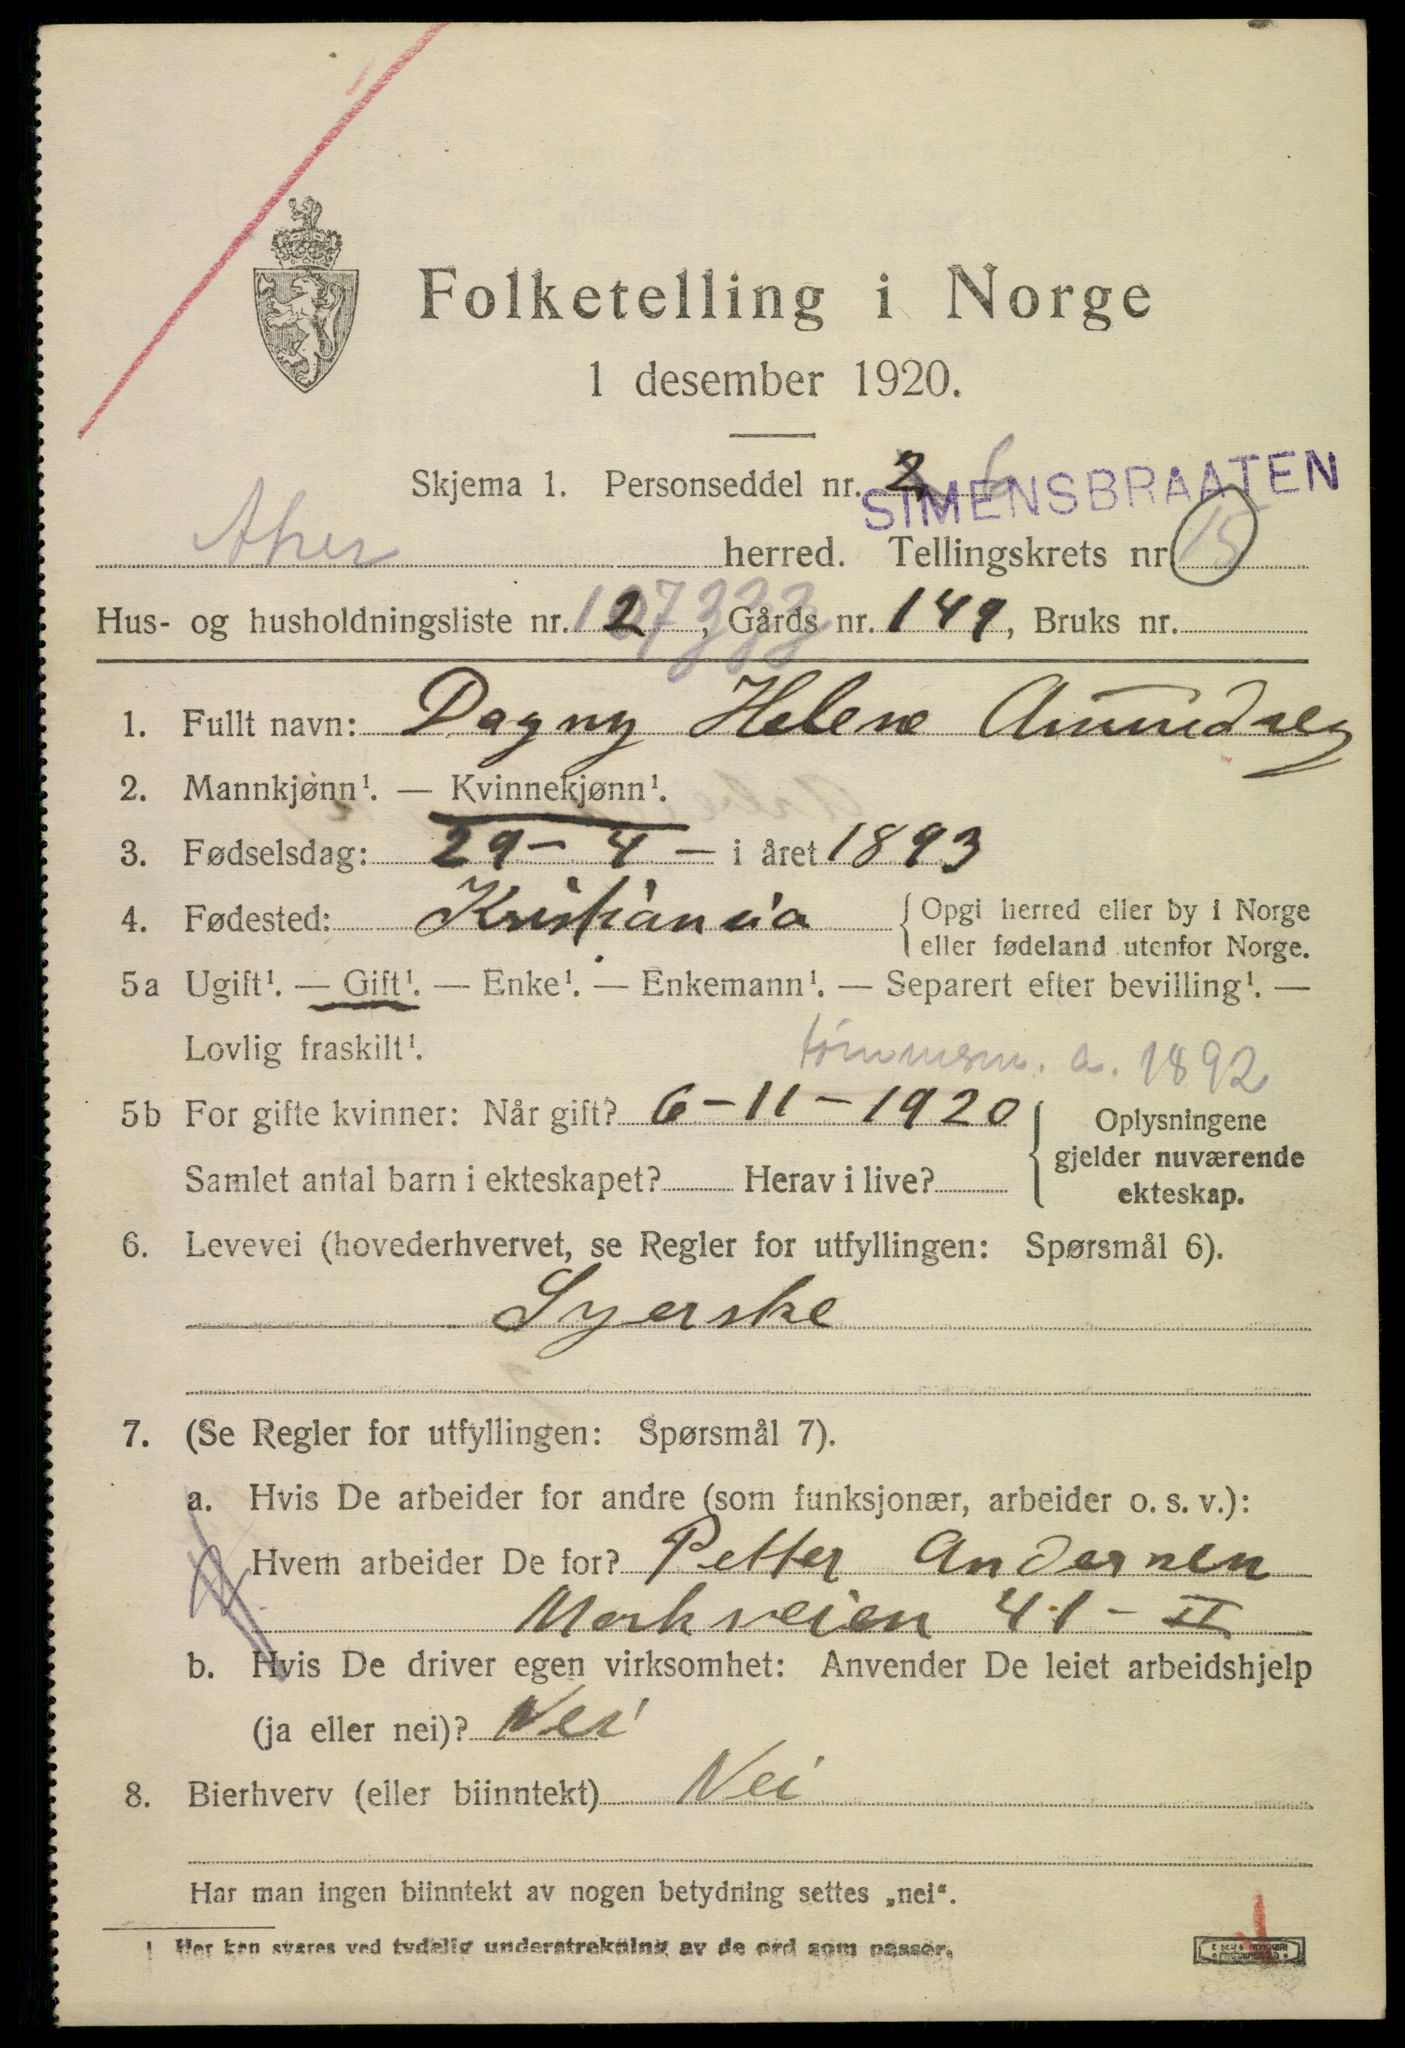 Folketelling i Norge
1 desember 1920.
Skjema 1. Personseddel nr. 2 6
SIMENSBRAATEN
Aker herred. Tellingskrets nr 15
Hus- og husholdningsliste nr. 2, Gårds nr. 149, Bruks nr.
1. Fullt navn: Dagny Helene
2. Mannkjønn¹. — Kvinnekjønn¹.
3. Fødselsdag: 29 – 4 – i året 1893
4. Fødested: Kristiania {Opgi herred eller by i Norge
eller fødeland utenfor Norge.
5a Ugift¹. — Gift¹. — Enke¹. — Enkemann¹. — Separert efter bevilling¹. —
Lovlig fraskilt¹.
a. 1892
5b For gifte kvinner: Når gift? 6 – 11 – 1920 { Oplysningene
gjelder nuværende
Samlet antal barn i ekteskapet? Herav i live? ekteskap.
6. Levevei (hovederhvervet, se Regler for utfyllingen: Spørsmål 6).
Syerske
7. (Se Regler for utfyllingen: Spørsmål 7).
a. Hvis De arbeider for andre (som funksjonær, arbeider o. s. v.):
Hvem arbeider De for? Petter Andersen
Markveien 41 – II
b. Hvis De driver egen virksomhet: Anvender De leiet arbeidshjelp
(ja eller nei)? Nei
8. Bierhverv (eller biinntekt) Nei
Har man ingen biinntekt av nogen betydning settes „nei“.
1 Her kan svares ved tydelig understrekning av de ord som passer.